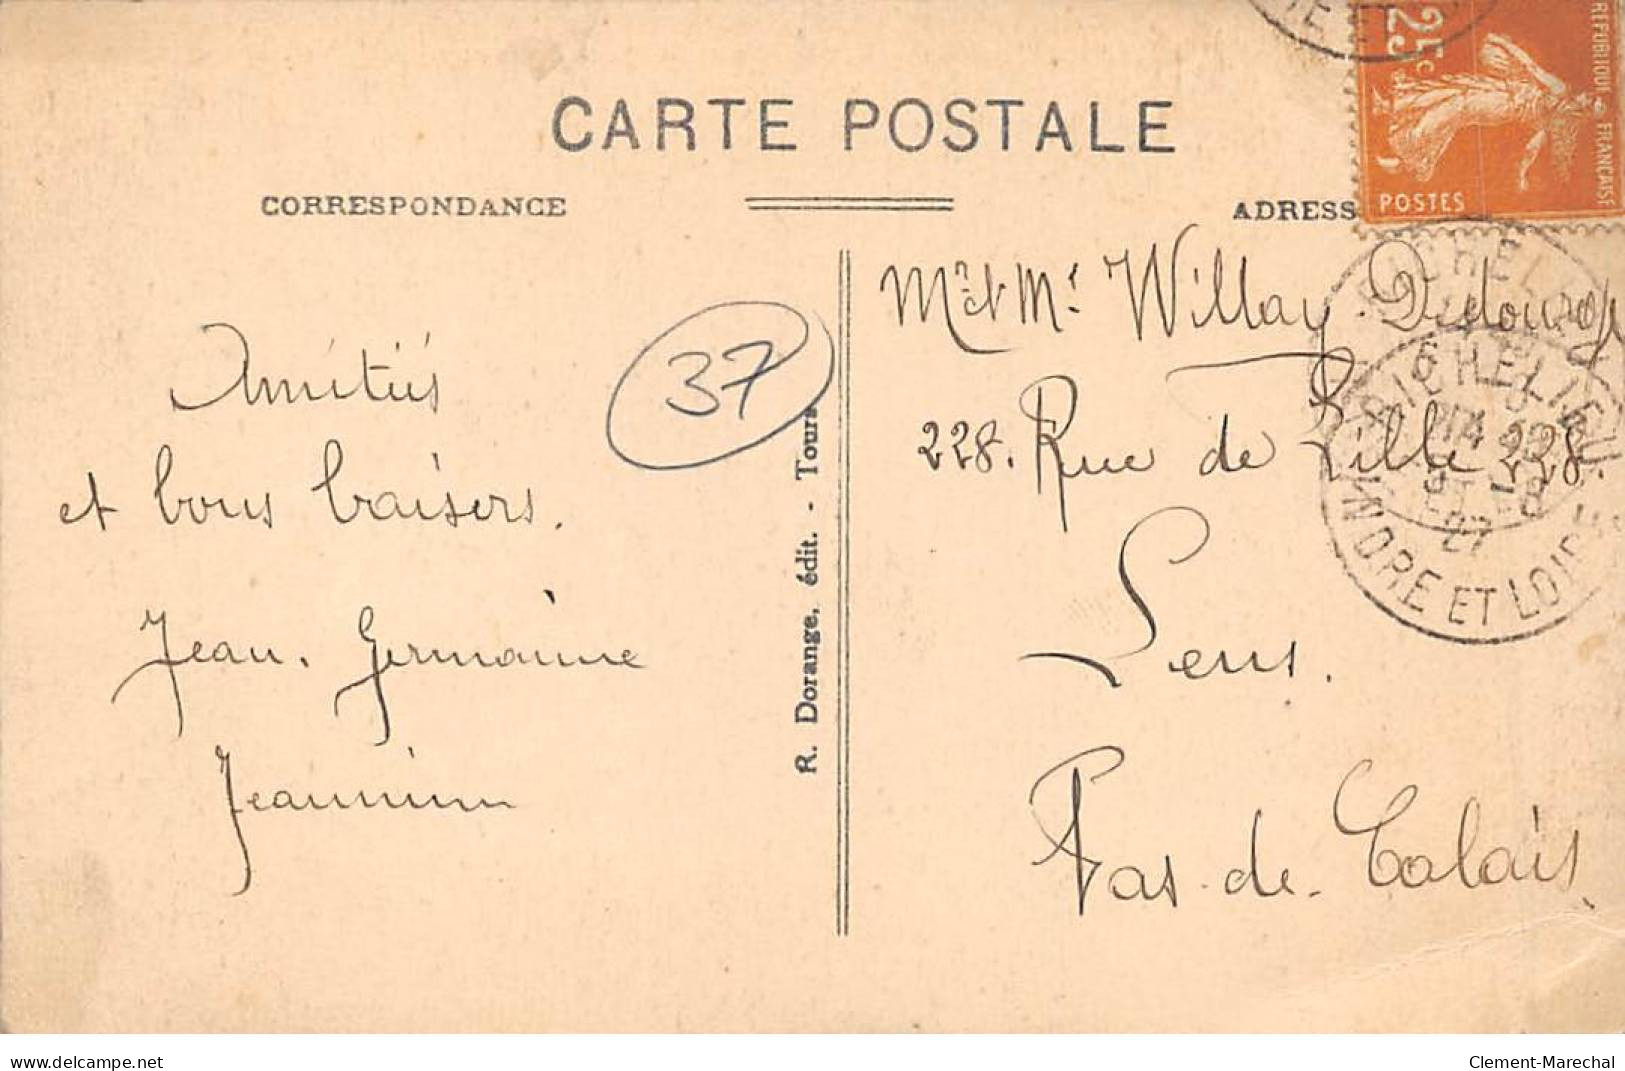 CARTE POSTALE
CORRESPONDANCE
ADRESS
25c
REPUBLIQUE FRANÇAISE
POSTES
Amitiés
et bons baisers.
Jean. Germaine
Jeannine
37
R. Dorange, édit. - Tours
Mr et Me Willay
228. Rue de Lille 228.
Lens.
Pas-de-Calais
RICHELIEU
27
INDRE ET LOIRE
www.delcampe.net
Clement-Marechal